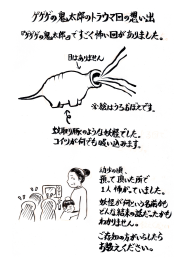 ゲゲゲの鬼太郎のトラウマ回の思い出
『ゲゲゲの鬼太郎』ですごく怖い回がありました。
目はありません
※絵はうろおぼえです。
蚊取り豚のような妖怪でした。
コイツが何でも吸い込みます。
幼少の頃、
預って頂いた所で
1人怖がっていました。
妖怪が何という名前かも
どんな結末の話だったかも
わかりません。
ご存知の方がいらしたら
お教えください。